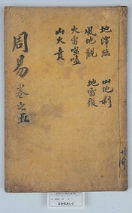 地澤臨
風地觀
火雷噬嗑
山火賁
山地剝
地雷復
周易 卷之五